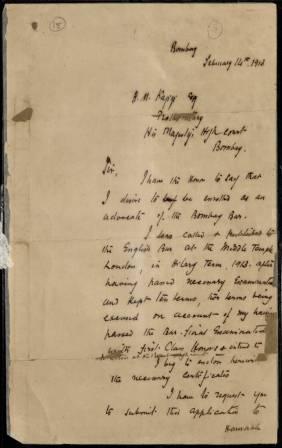 15
Bombay
February 14th, 1913
Esq
Prothonotary
His Majesty's High Court
Bombay.
Sir,
I have the honor to say that
I desire to be enrolled as an
advocate of the Bombay Bar.
I was called & published to
the English Bar at the Middle Temple
London, in Hilary Term, 1913, after
having passed necessary Examination
and kept ten terms, two terms being
excused on account of my having
passed the Bar-final Examination
with first-Class Honors
I beg to enclose herewith
the necessary certificates
I have to request you
to submit this application to
Honorable